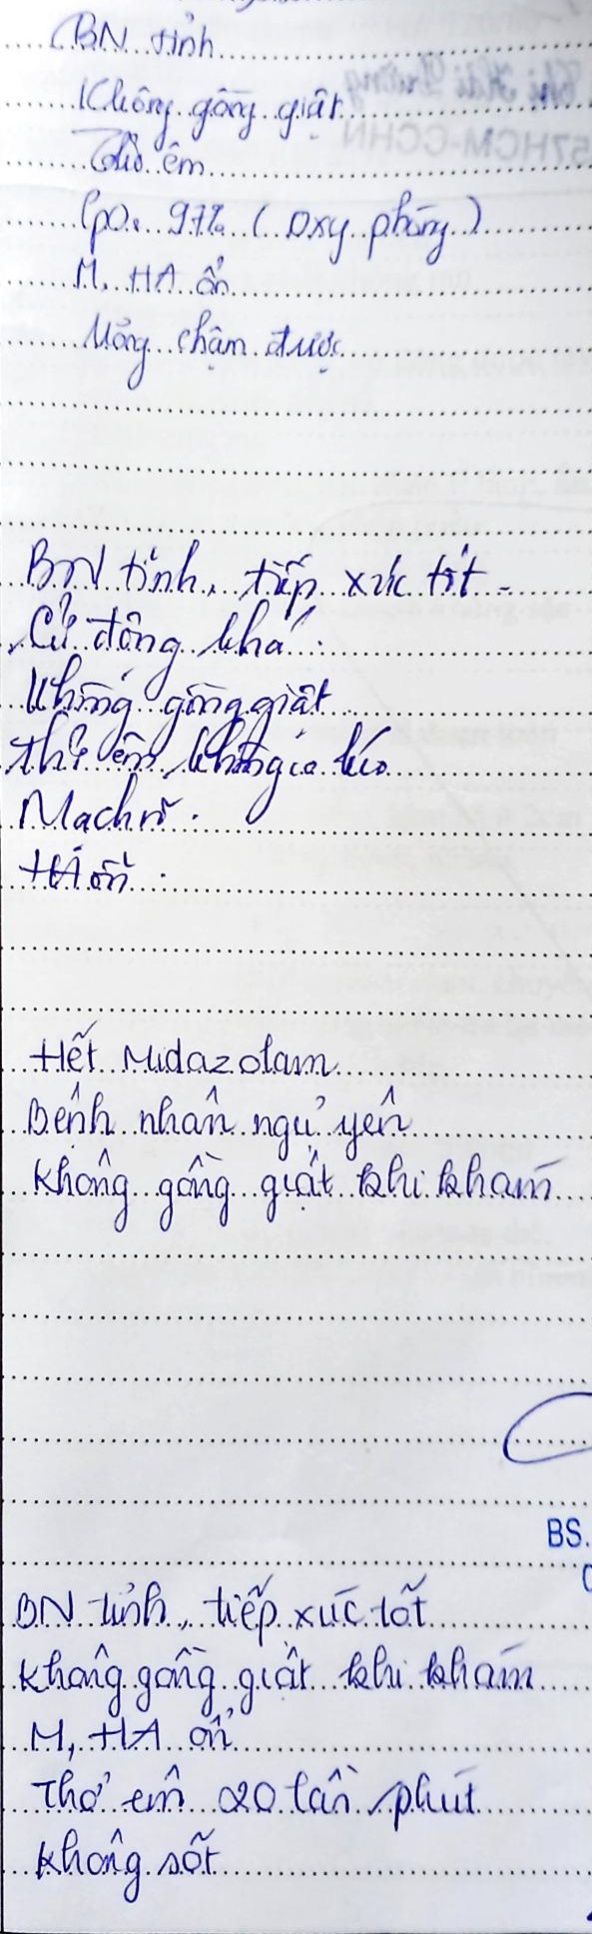 BN tỉnh
Không gồng giật
Thở êm
SpO₂ 97% (oxy phòng)
M, HA ổn
Uống chậm được
BN tỉnh, tiếp xúc tốt
Cử động khá
Không gồng giật
Thở êm, không co kéo
Mạch rõ
HA ổn
Hết Midazolam
Bệnh nhân ngủ yên
Không gồng giật khi khám
BS.
BN tỉnh, tiếp xúc tốt
Không gồng giật khi khám
M, HA ổn
Thở êm 20 lần/phút
Không sốt